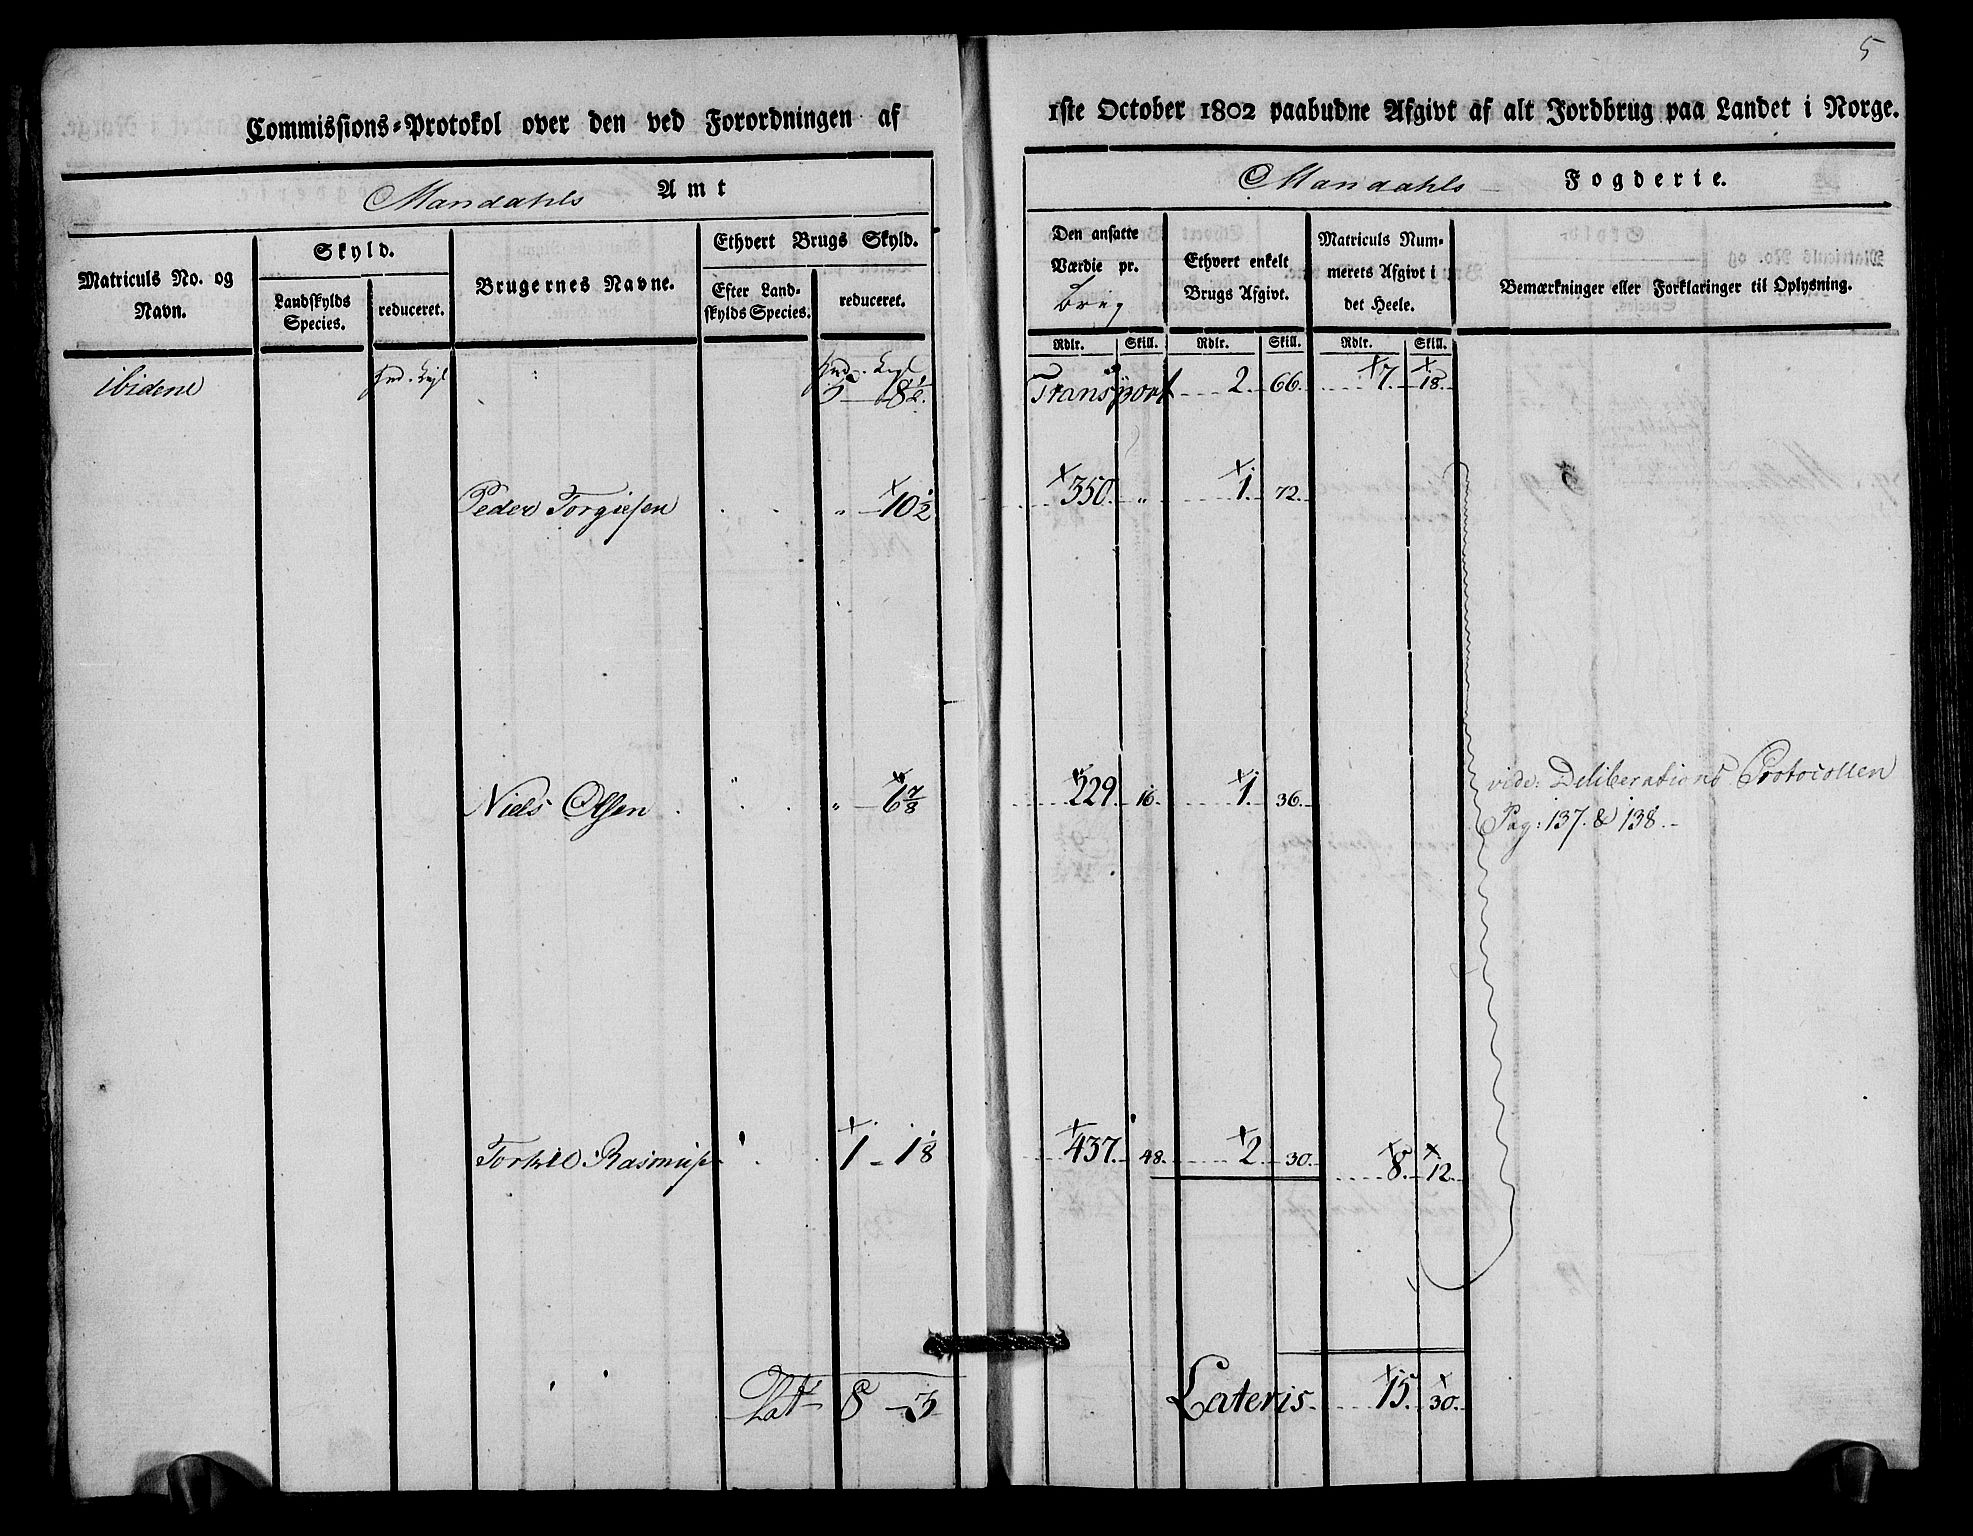 5
Commissions-Protokol over den ved Forordningen af
1ste October 1802 paabudne Afgivt af alt Jordbrug paa Landet i Norge.
Mandahls Amt
Mandahls Fogderie.
Matriculs No. og Navn.
Skyld.
Landskylds Species.
reduceret.
Brugernes Navne.
Ethvert Brugs Skyld.
Efter Landskylds Species.
reduceret.
Den ansatte Værdie pr. Brug
Ethvert enkelt Brugs Afgivt.
Matriculs Nummerets Afgivt i det Heele.
Bemærkninger eller Forklaringer til Oplysning.
Rdlr. Skill. Rdlr. Skill. Rdlr. Skill.
ibidem 8½ Transport 2 66 7 18
Peder Torgiesen " 10½ 350 " 1 72
Niels Olsen " 6⅞ 229 16 1 36
vide: Deliberations Protocollen
Pag: 137. & 138.
Rasmus 1 18 437 48 2 30 8 12
Lat 8 3 Lateris 15 30